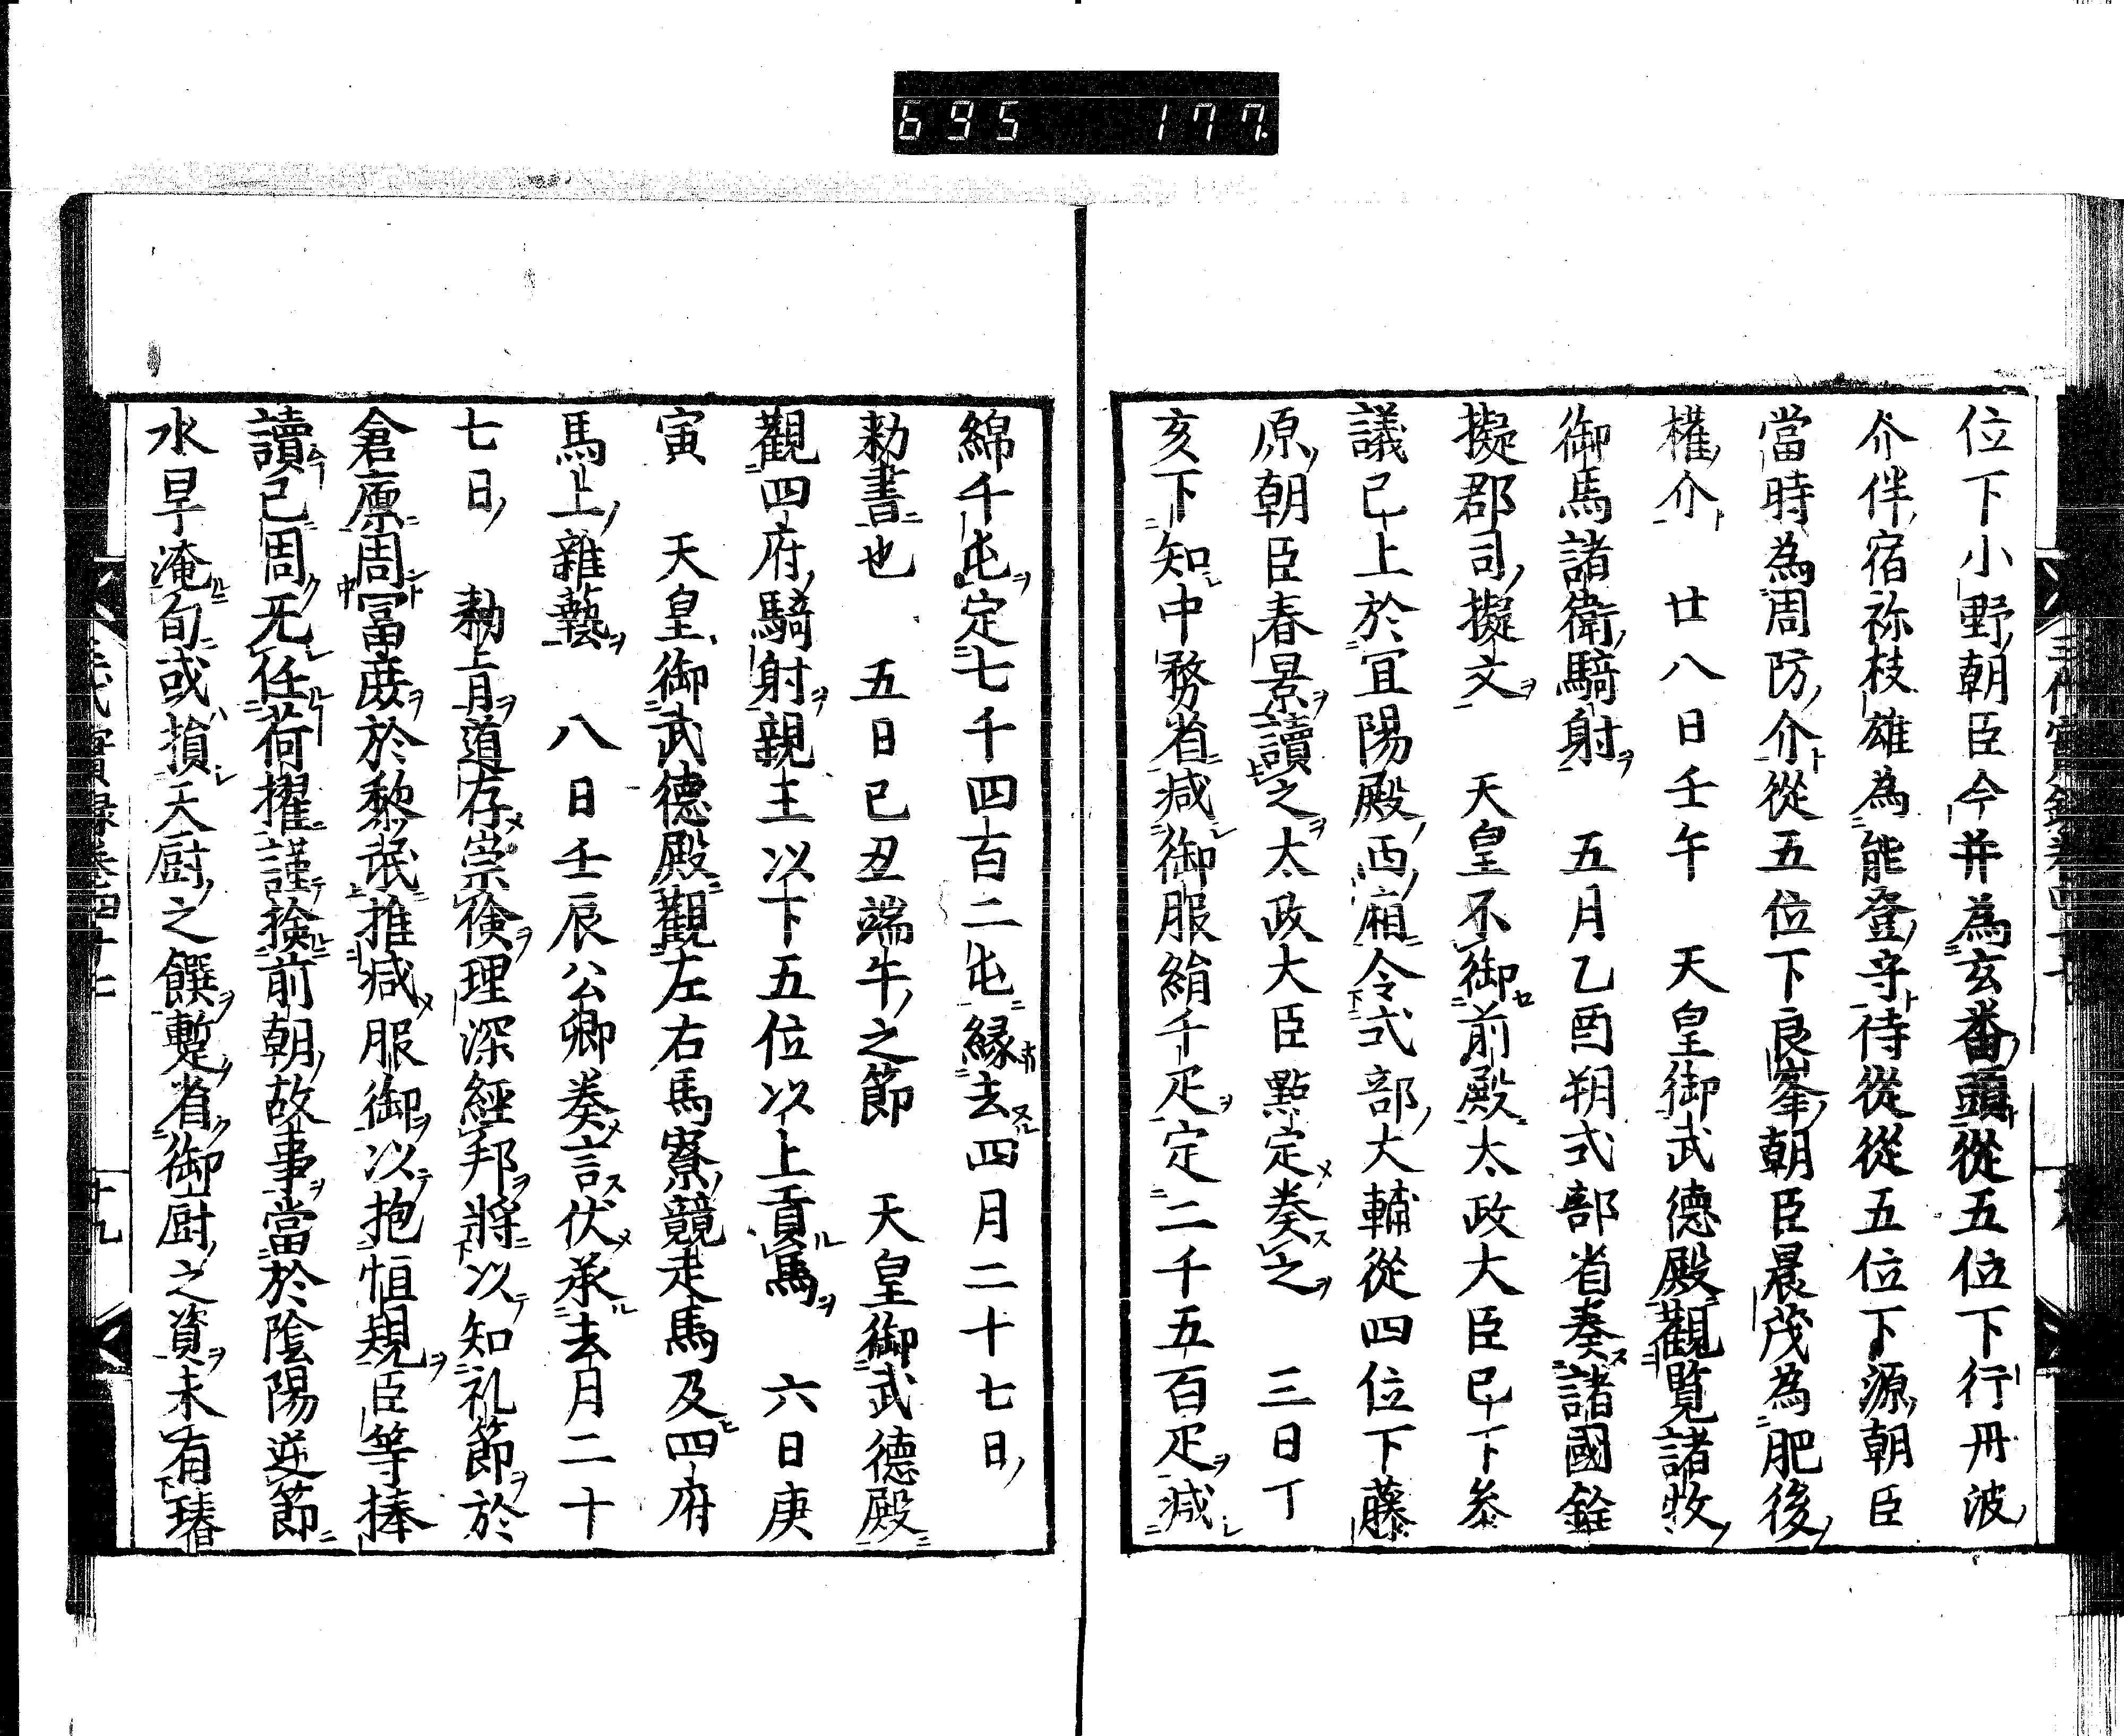 695 177.
位下小野朝臣今并為玄蕃頭從五位下行丹波
介伴宿祢枝雄為能登守待從從五位下源朝臣
當時為周防介從五位下良峯朝臣晨茂為肥後
權介 廿八日壬午 天皇御武德殿觀覽諸牧
御馬諸衛騎射 五月乙酉朔式部省奏諸國銓
擬郡司擬文 天皇不御前殿太政大臣已下參
議已上於宜陽殿西廂令式部大輔從四位下藤
原朝臣春景讀之太政大臣點定奏之 三日丁
亥下知中務省减御服絹千疋定二千五百疋减
綿千屯定七千四百二屯縁去四月二十七日
勅書也 五日已丑端午之節 天皇御武德殿
觀四府騎射親王以下五位以上貢馬 六日庚
寅 天皇御武德殿觀左右馬寮競走馬及四府
馬上雜藝 八日壬辰公卿奏言伏承去月二十
七日 勅上月道存崇儉理深經邦將以知礼節於
倉廩周冨庶於黎氓推减服御以抱恒規臣等捧
讀已周无任荷擢謹撿前朝故事當於陰陽逆節
水旱淹旬或損天厨之饌蹔省御厨之資未有瑃
三代實録卷四十七
十九